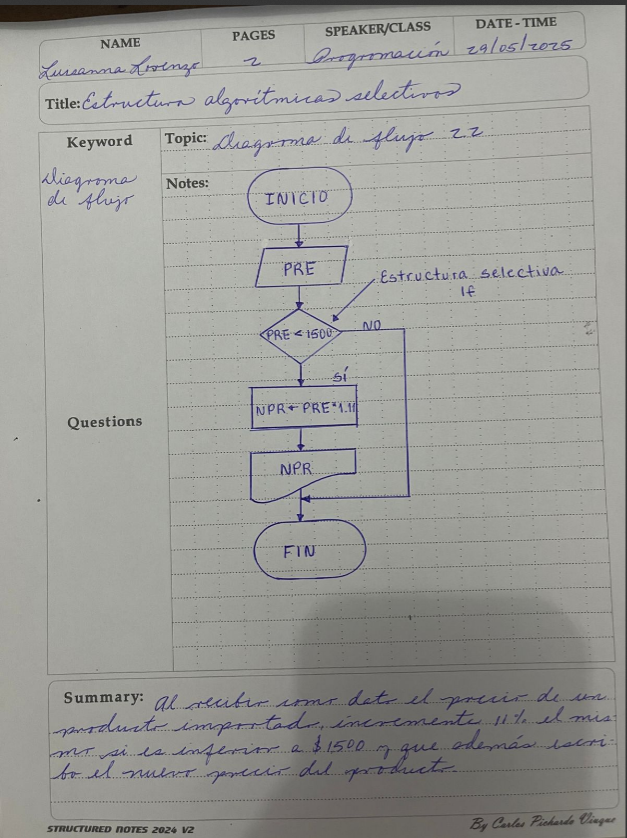 NAME PAGES SPEAKER/CLASS DATE - TIME
Luisanna Lorenzo 2 Programación 29/05/2025
Title: Estructura algorítmicas selectivas
Keyword Topic: Diagrama de flujo 2.2
Diagrama
de flujo
Notes:
INICIO
PRE
Estructura selectiva
If
PRE < 1500
NO
SÍ
NPR ← PRE*1.11
Questions
NPR
FIN
Summary: Al recibir como dato el precio de un
producto importado, incremente 11% el mis-
mo si es inferior a $1500 y que además escri-
ba el nuevo precio del producto.
STRUCTURED NOTES 2024 V2 By Carlos Pichardo Viuque